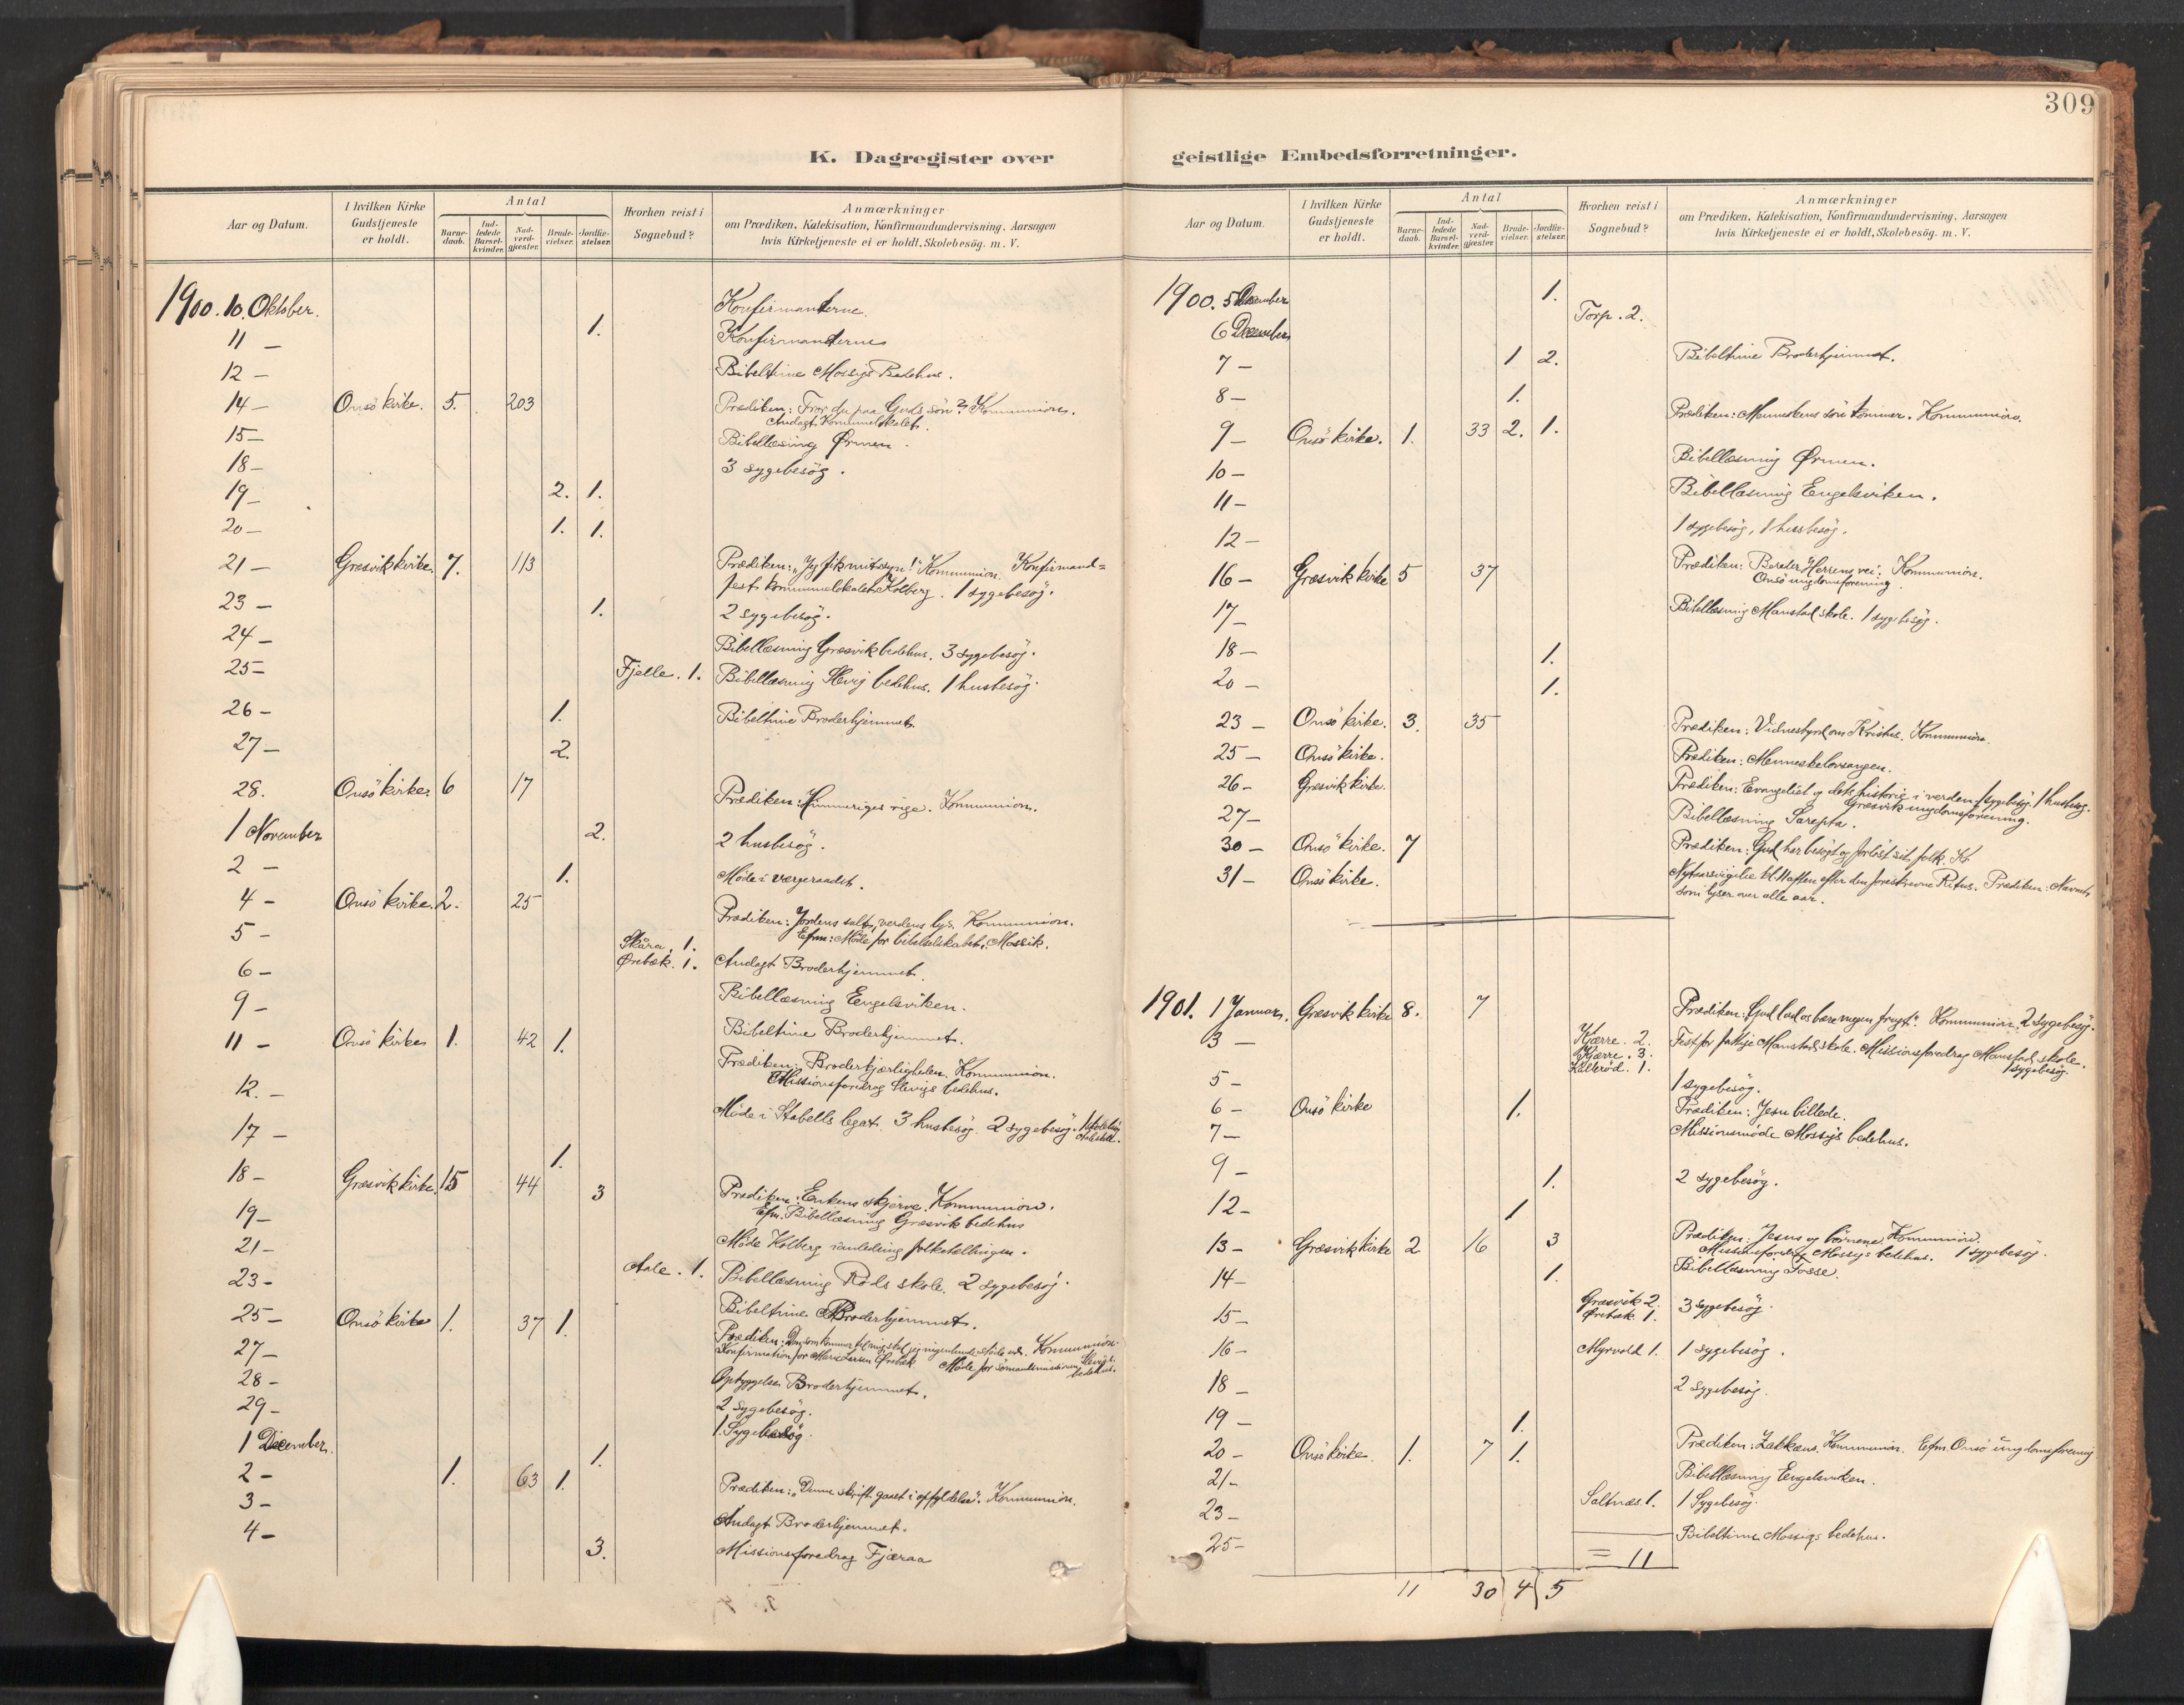 309
K. Dagregister over geistlige Embedsforretninger.
Aar og Datum.
I hvilken Kirke Gudstjeneste er holdt.
Antal
Barne-daab.
Ind-ledede Barsel-kvinder.
Nad-verd-gjester.
Brude-vielser.
Jordfæ-stelser.
Hvorhen reist i Sognebud?
Anmærkninger
om Prædiken, Katekisation, Konfirmandundervisning, Aarsagen
hvis Kirketjeneste ei er holdt, Skolebesög. m. V.
1900. 10. Oktober. Konfirmanterne.
11 — 1. Konfirmanterne
12 — Bibeltime Mossigs Bedehus.
14 — Onsö kirke. 5. 203 Prædiken: Tror du paa Guds sön? Kommunion.
Andagt Kommunelokalet.
15 — Bibellæsning Ørmen.
18 — 3 sygebesög.
19 — 2. 1.
20 — 1. 1.
21 — Græsvik kirke. 7. 113 Prædiken: „Jeg fik mit syn!" Kommunion. Konfirmand=
fest. kommunelokalet Kolberg. 1 sygebesög.
23 — 1. 2 sygebesög.
24 — Bibellæsning Græsvik bedehus. 3 sygebesög.
25 — Fjelle. 1. Bibellæsning Slevig bedehus. 1 husbesög.
26 — 1. Bibeltime Broderhjemmet
27 — 2.
28. Onsö kirke. 6 17 Prædiken: Himmeriges rige. Kommunion.
1 November 2. 2 husbesög.
2 — 1. Möde i værgeraadet.
4 — Onsö kirke. 2. 25 Prædiken: Jordens salt, verdens lys. Kommunion.
Efrm: Möde for bibelselskabet. Mossik.
5 — Skåra. 1.
Ørebæk. 1.
6 — Andagt Broderhjemmet.
9 — Bibellæsning Engelsviken.
Bibeltime Broderhjemmet.
11 — Onsö kirke 1. 42 1. Prædiken: Broderkjærligheden. Kommunion.
Missionsforedrag Slevigs bedehus.
12. — Möde i Stabells legat. 3 husbesög. 2 sygebesög.
17 — 1.
18 — Græsvik kirke. 15 44 3 Prædiken: Enkens skjerve. Kommunion.
Efm. Bibellæsning Græsvik bedehus
19 —
21 — Möde Kolberg i anledning folketællingen.
23 — Aale. 1. Bibellæsning Röds skole. 2 sygebesög.
Bibeltime Broderhjemmet.
25 — Onsö kirke 1. 37 1. Prædiken: Den som kommer til mig skal jeg ingenlunde støde ud. Kommunion.
Konfirmation for Larsen Ørebæk Möde for sömandsmissionen Slevigs bedehus.
27 — Opbyggelse Broderhjemmet.
28 — 2 sygebesög.
29 — 1. Sygebesög.
1 December. 1.
2 — 1. 63 1. Prædiken: „Denne skrift gaaet i opfyldelse". Kommunion.
3 — Andagt Broderhjemmet.
4 — 3. Missionsforedrag Fjæraa
1900. 5 December 1.
6 December Torp. 2.
7 — 1 2. Bibeltime Broderhjemmet.
8 — 1.
9 — Onsö kirke. 1. 33 2. 1. Prædiken: Menneskens sön kommer. Kommunion.
10 — Bibellæsning Ørmen.
11 — Bibellæsning Engelsviken.
12 — 1 sygebesög, 1 husbesög.
16 — Græsvik kirke 5 37 Prædiken: Bereder Herrens vei. Kommunion.
Onsö ungdomsforening.
17 — Bibellæsning Manstad skole. 1 sygebesög.
18 — 1.
20 — 1.
23 — Onsö kirke. 3. 35 Prædiken: Vidnesbyrd om Kristus. Kommunion.
25 — Onsö kirke. Prædiken: Menneskelovsangen.
26 — Græsvik kirke. Prædiken: Evangeliet og dets historie i verden. 1 sygebesög. 1 husbesög.
Græsvik ungdomsforening.
27 — Bibellæsning Sarepta.
30 — Onsö kirke. 7 Prædiken: Gud har besögt og forlöst sit folk.
31 — Onsö kirke. Nytaarsvigilie kl. 11 aften efter den foreskrevne Ritus. Prædiken: Navnet,
som lyser over alle aar.
1901. 1 Januar. Græsvik kirke 8. 7 Prædiken: Gud lad os bære megen frugt". Kommunion. 2 sygebesög.
3 — Kjærre. 2. Fest for fattige Manstad skole. Missionsforedrag Manstad skole.
Kjærre. 3. 1 sygebesög.
1.
5 — 1 sygebesög.
6 — Onsö kirke 1. Prædiken: Jesu billede.
7 — Missionsmöde Mossigs bedehus.
9 — 1. 2 sygebesög.
12 — 1
13 — Græsvik kirke 2 16 3 Prædiken: Jesus og börnene. Kommunion.
Missionsforedrag Mossigs bedehus. 1 sygebesög.
14 — 1. Bibellæsning Fosse.
15 — Græsvik 2. 3 sygebesög.
Ørebæk 1.
16 — Myrvold 1. 1 sygebesög.
18 — 2 sygebesög.
19 — 1.
20 — Onsö kirke. 1. 7 1. Prædiken: Zakkæus. Kommunion. Efm. Onsö ungdomsforening
21 — Bibellæsning Engelsviken.
23 — Saltnæs 1. 1 Sygebesög.
25 — Bibeltime Mossigs bedehus.
= 11
11 30 4 5